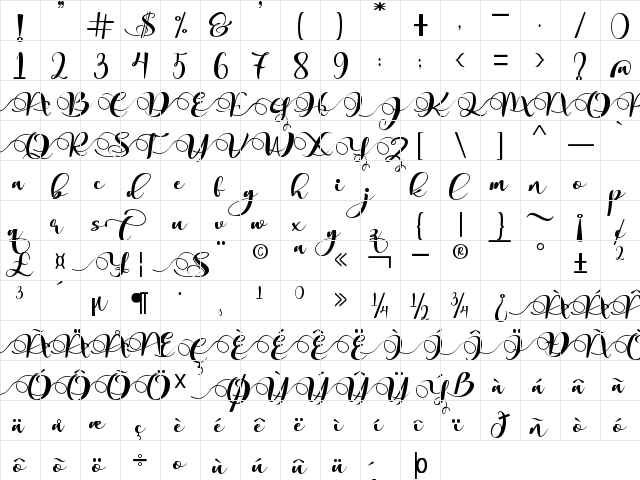 ! " # $ % & ' ( ) * + , - . / 0
1 2 3 4 5 6 7 8 9 : ; < = > ? @
A B C D E F G H I J K L M N O P
Q R S T U V W X Y Z [ \ ] ^ _ `
a b c d e f g h i j k l m n o p
q r s t u v w x y z { | } ~ ¡ ¢
£ ¤ ¥ ¦ § ¨ © ª « ¬ ­- ® ¯ ° ± ²
³ ´ µ ¶ · ¸ ¹ º » ¼ ½ ¾ ¿ À Á Â
Ã Ä Å Æ Ç È É Ê Ë Ì Í Î Ï Ð Ñ Ò
Ó Ô Õ Ö × Ø Ù Ú Û Ü Ý ß à á â ã
ä å æ ç è é ê ë ì í î ï ð ñ ò ó
ô õ ö ÷ ø ù ú û ü ´ þ